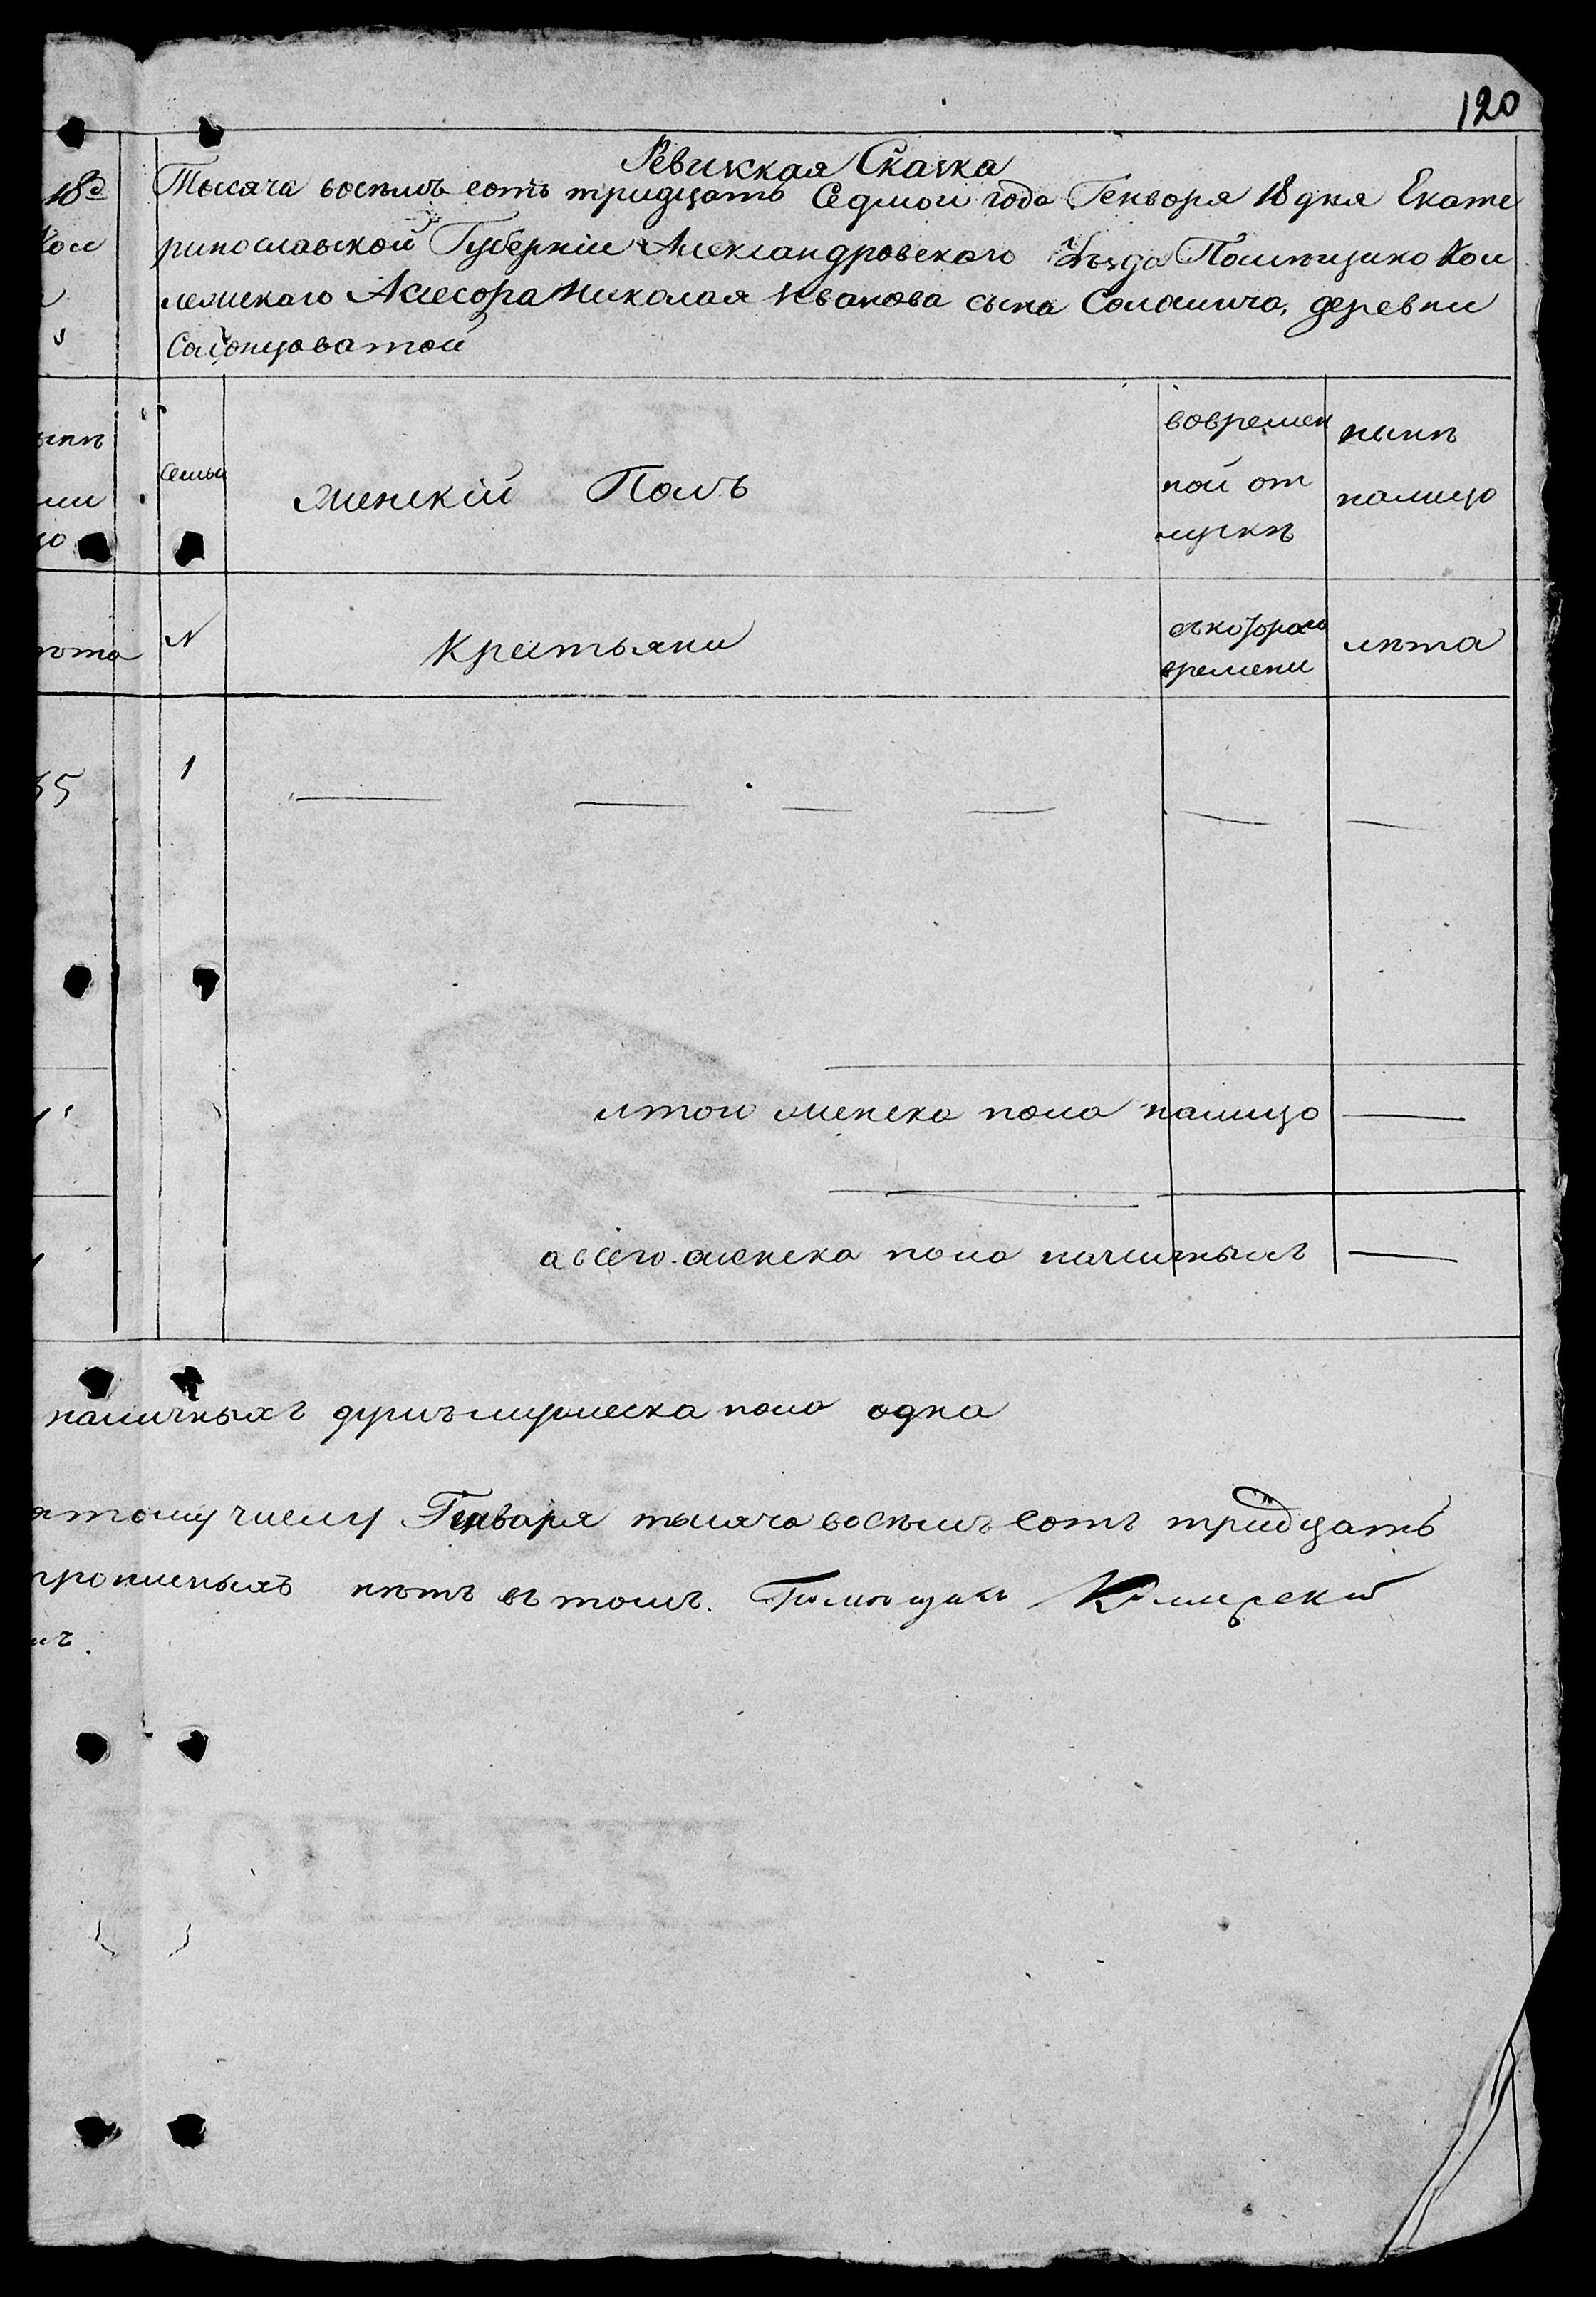 120
Ревижкая Сказка
18д Тысяча восемь сотъ тридцать Седмои года Генворя 18 дня Екате
кол ринославской Губерніи Александровского Уѣзда Помѣщика Кол
лежскаго Асесора Николая Иванова сына Солошича, деревни
Солонцоватой
вовремен нынѣ
Семьи женскій Полъ ной от налицо
лучкѣ
ѣта N Крестьяни съкоторого лѣта
времени
35 1
итого женска пола налицо
а всего женска пола наличныхъ
наличныхъ душъ мужеска пола одна
ятому числу Генваря тысяча восемь сотъ тридцать
прописныхъ нѣтъ въ томъ. Помѣщикъ